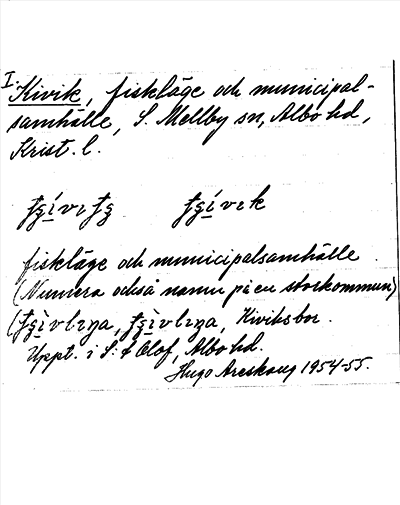 I.
Kivik, fiskläge och municipal-
samhälle, S. Mellby sn, Albo hd,
Krist. l.
fiskläge och municipalsamhälle
(Numera också namn på en storkommun)
Kiviksbor.
Uppt. i S:t Olof, Albo hd.
Hugo Areskoug 1954-55.